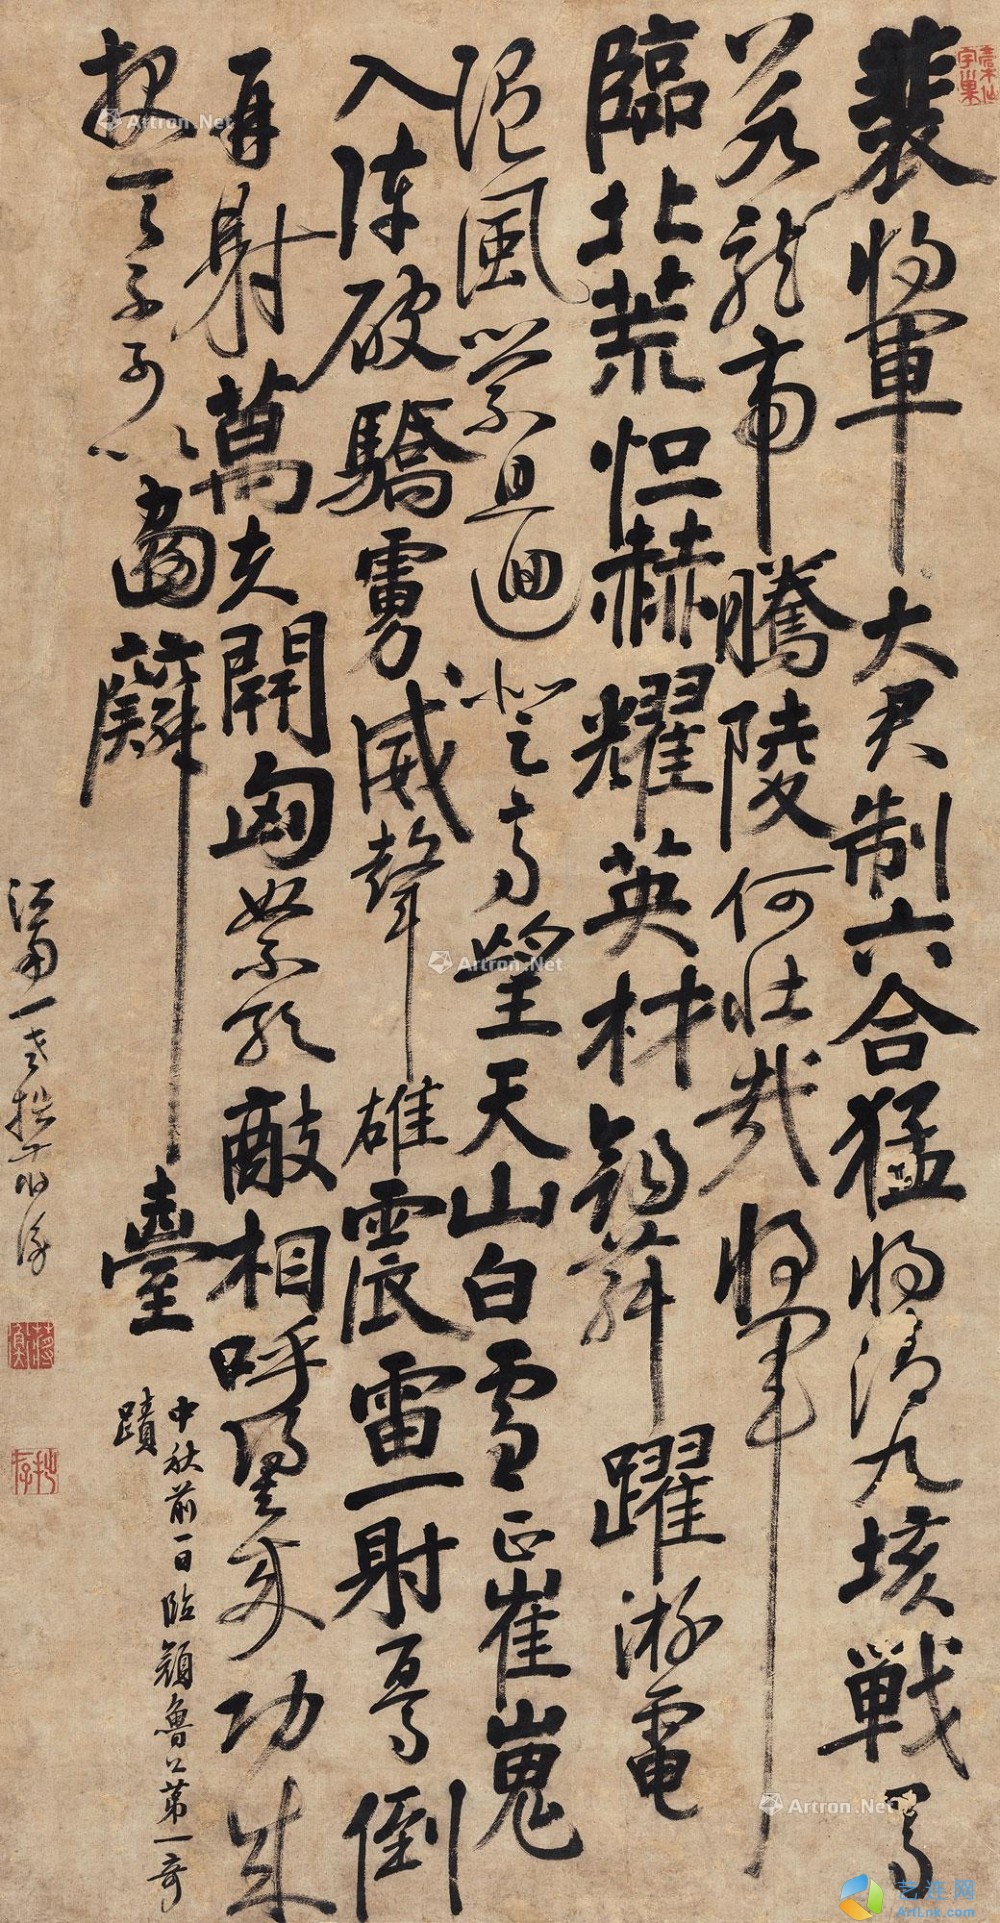 裴將軍大君制六合猛將清九垓戰馬
若龍虎騰陵何壯哉將軍
臨北荒怛赫耀英材劍舞躍游電
隨風縈且迴登高望天山白雪正崔嵬
入陣破驕虜威聲雄震雷一射馬倒
再射萬夫開匈奴不敢敵相呼歸去來功成
報天子可以畫麟臺
中秋前一日臨顏魯公第一奇
蹟
江南一老拙存
Artron.Net
Artron.Net
Artron.Net
艺连网
ArtLnk.com